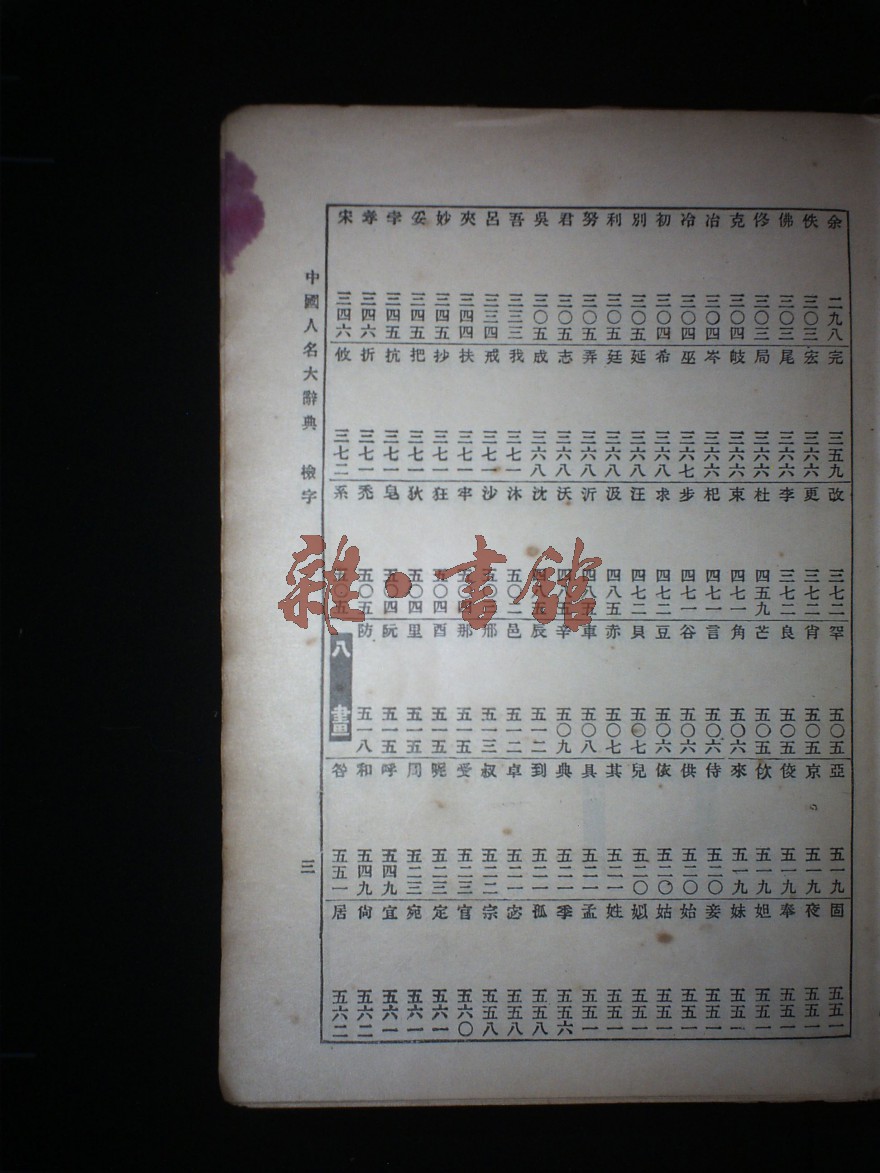 中國人名大辭典 檢字
余 二九八
佚 三〇三
佛 三〇三
佟 三〇三
克 三〇四
冶 三〇四
冷 三〇四
初 三〇四
別 三〇五
利 三〇五
努 三〇五
君 三〇五
吳 三〇五
吾 三三三
呂 三三四
夾 三四四
妙 三四五
妥 三四五
孛 三四五
孝 三四六
宋 三四六
完 三五九
宏 三六六
尾 三六六
局 三六六
岐 三六六
岑 三六六
巫 三六七
希 三六八
延 三六八
廷 三六八
弄 三六八
志 三六八
成 三六八
我 三七一
戒 三七一
扶 三七一
抄 三七一
把 三七一
抗 三七一
折 三七一
攸 三七二
改 三七二
更 三七二
李 三七二
杜 四五九
束 四七一
杞 四七一
步 四七一
求 四七二
汪 四七二
汲 四八五
沂 四八五
沃 四八五
沈 四八五
沐 五〇二
沙 五〇三
牢 五〇四
狂 五〇四
狄 五〇四
皂 五〇四
禿 五〇五
系 五〇五
罕 五〇五
肖 五〇五
良 五〇五
芒 五〇五
角 五〇六
言 五〇六
谷 五〇六
豆 五〇六
貝 五〇七
赤 五〇七
車 五〇八
辛 五〇九
辰 五一二
邑 五一二
邢 五一三
那 五一五
酉 五一五
里 五一五
阮 五一五
防 五一八
八畫
亞 五一九
京 五一九
五一九
佽 五一九
來 五一九
侍 五二〇
供 五二〇
依 五二〇
兒 五二〇
其 五二一
具 五二一
典 五二一
到 五二一
卓 五二一
叔 五二二
受 五二三
呢 五二三
周 五二三
呼 五四九
和 五四九
咎 五五一
固 五五一
夜 五五一
奉 五五一
妲 五五一
妹 五五一
妾 五五一
始 五五一
姑 五五一
姒 五五一
姓 五五一
孟 五五一
季 五五六
孤 五五八
宓 五五八
宗 五五八
官 五六〇
定 五六一
宛 五六一
宜 五六一
尙 五六二
居 五六二
三
雜·書館